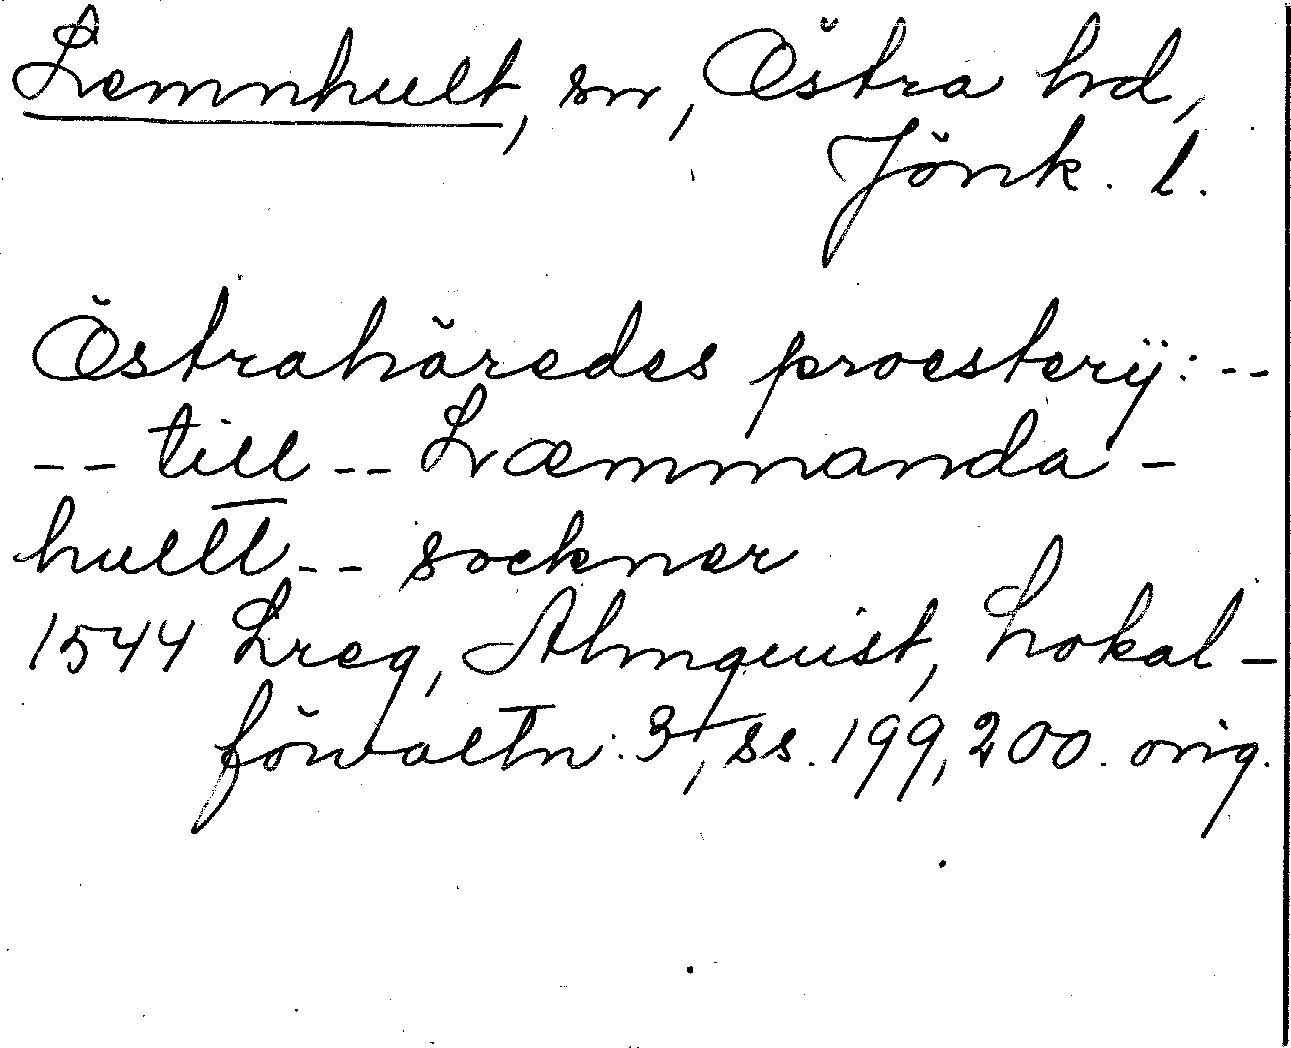 Lemnhult, sn, Östra hd,
Jönk. l.
Östrahäredes proesterÿ: --
-- till -- Læmmanda-
hullt -- sockner
1544 Lreg, Almquist, Lokal-
förvaltn. 3, ss. 199, 200. orig.